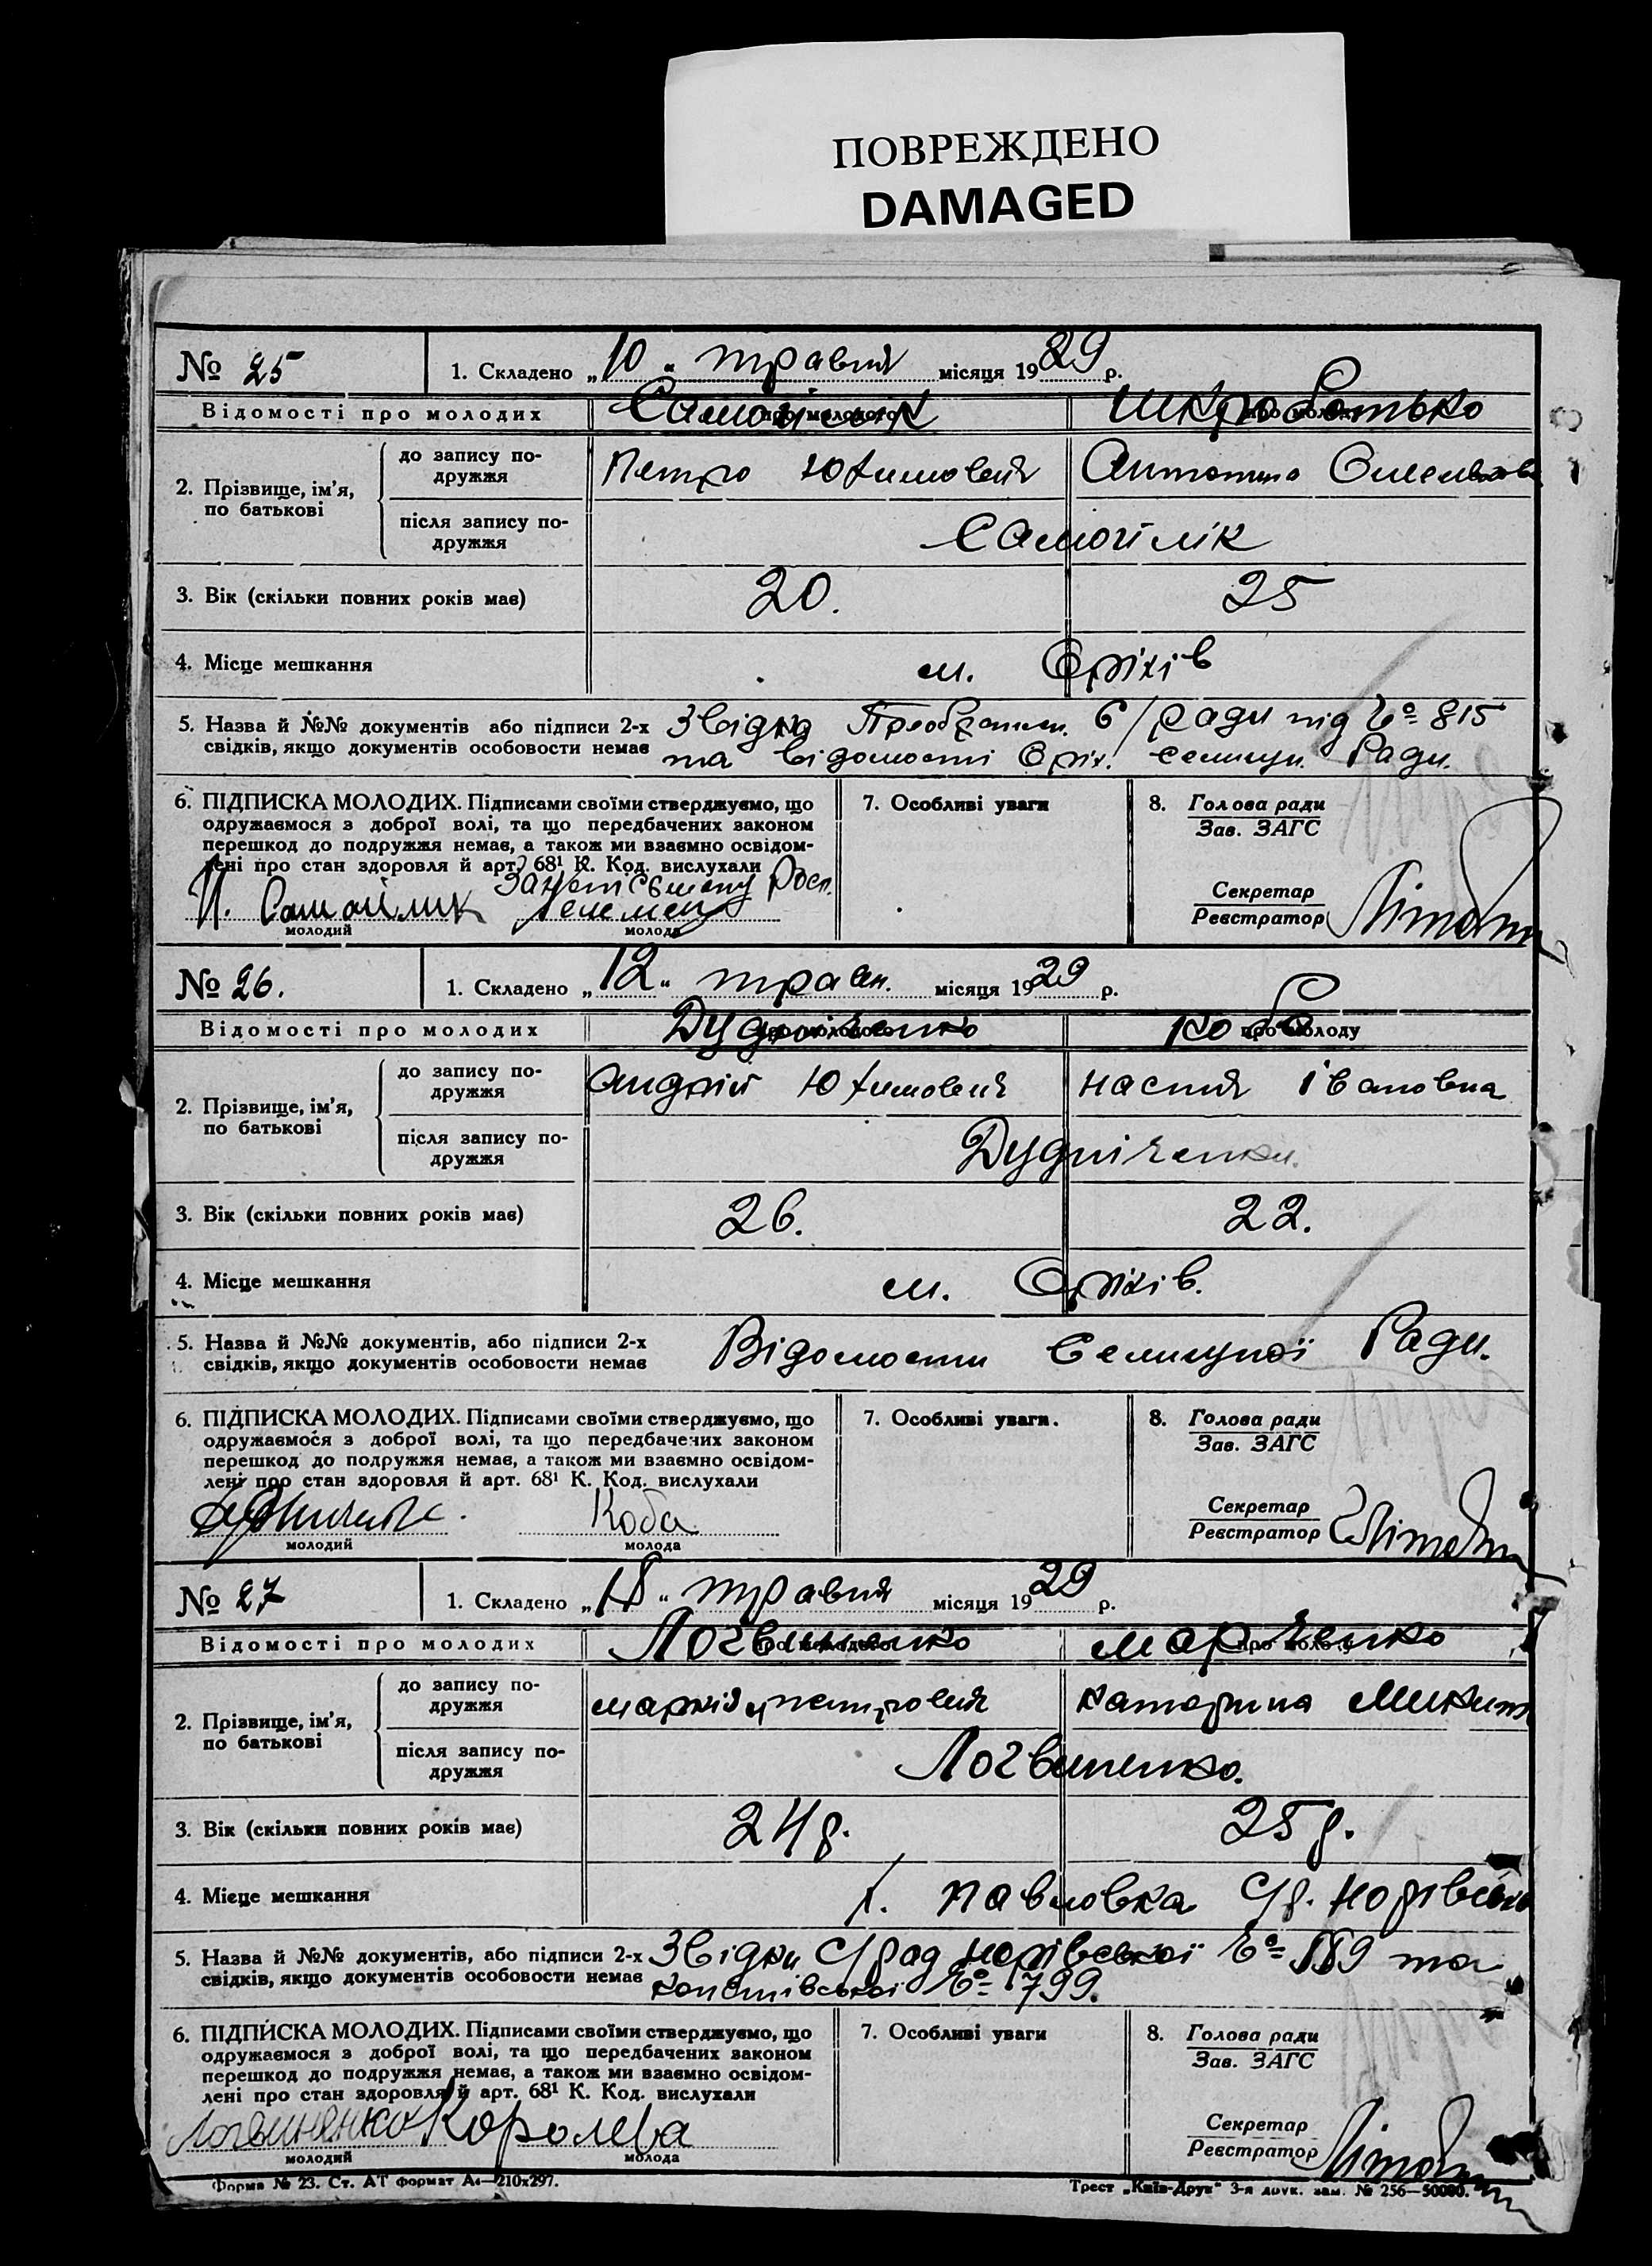 ПОВРЕЖДЕНО
DAMAGED
№ 25 1. Складено „10“ травня місяця 1929 р.
Відомості про молодих про молодого Самойлик про молоду Шкробатько
2. Прізвище, ім'я, по батькові
до запису подружжя Петро Юхимович Антонина
після запису подружжя Самойлік
3. Вік (скільки повних років має) 20. 25
4. Місце мешкання м. Оріхів
5. Назва й №№ документів або підписи 2-х Звідка Преображен. С/ради під № 815
свідків, якщо документів особовости немає та відомості Оріх. селищн. Ради.
6. ПІДПИСКА МОЛОДИХ. Підписами своїми стверджуємо, що 7. Особливі уваги 8. Голова ради
одружаємося з доброї волі, та що передбачених законом Зав. ЗАГС
перешкод до подружжя немає, а також ми взаємно освідом-
лені про стан здоровля й арт. 68¹ К. Код. вислухали
Секретар
П. Самойлик Реєстратор
молодий молода
№ 26. 1. Складено „12“ травн. місяця 1929 р.
Відомості про молодих про молодого Дудниченко про молоду Коба
2. Прізвище, ім'я, по батькові
до запису подружжя Андрій Юхимович Настя Івановна
після запису подружжя Дудніченки.
3. Вік (скільки повних років має) 26. 22.
4. Місце мешкання м. Оріхів.
5. Назва й №№ документів, або підписи 2-х Відомости Селищної Ради.
свідків, якщо документів особовости немає
6. ПІДПИСКА МОЛОДИХ. Підписами своїми стверджуємо, що 7. Особливі уваги. 8. Голова ради
одружаємося з доброї волі, та що передбачених законом Зав. ЗАГС
перешкод до подружжя немає, а також ми взаємно освідом-
лені про стан здоровля й арт. 68¹ К. Код. вислухали
Секретар
Коба Реєстратор
молодий молода
№ 27 1. Складено „18“ травня місяця 1929 р.
Відомості про молодих про молодого Логвиненко про молоду Марченко
2. Прізвище, ім'я, по батькові
до запису подружжя Петрович Катерина Микит
після запису подружжя Логвиненко.
3. Вік (скільки повних років має) 24 р. 25 р.
4. Місце мешкання х. Павловка С/р.
5. Назва й №№ документів, або підписи 2-х Звідки С/рад № 189 та
свідків, якщо документів особовости немає № 799.
6. ПІДПИСКА МОЛОДИХ. Підписами своїми стверджуємо, що 7. Особливі уваги 8. Голова ради
одружаємося з доброї волі, та що передбачених законом Зав. ЗАГС
перешкод до подружжя немає, а також ми взаємно освідом-
лені про стан здоровля й арт. 68¹ К. Код. вислухали
Секретар
Логвиненко Королева Реєстратор
молодий молода
Форма № 23. Ст. АТ формат А₄—210x297. Трест „Київ-Друк“ 3-я друк. зам. № 256—50000.